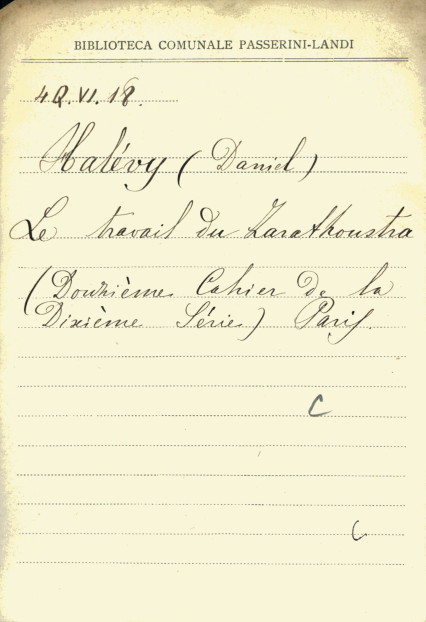 BIBLIOTECA COMUNALE PASSERINI-LANDI
4Q.VI.18.
Halévy (Daniel)
Le travail du Zarathoustra
(Douzième Cahier de la
Dixième Série) Paris.
C
C